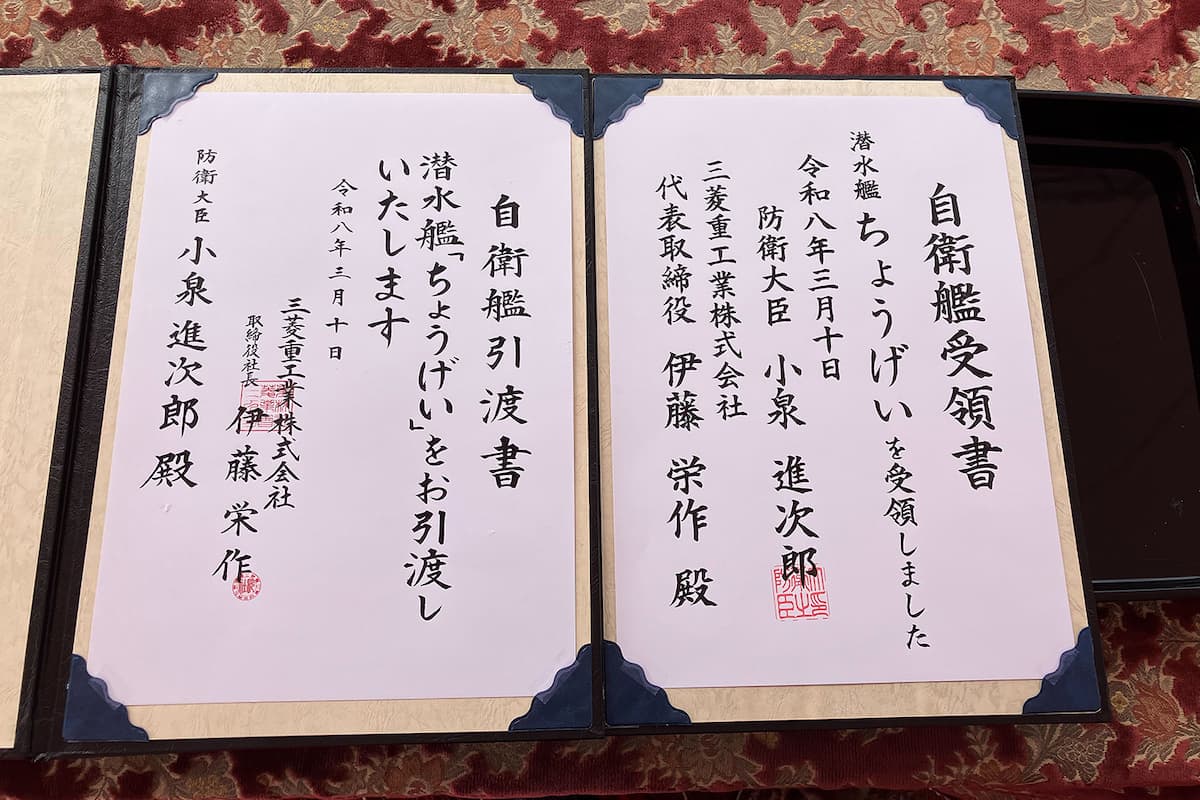 自衛艦受領書
潜水艦ちょうげいを受領しました
令和八年三月十日
防衛大臣 小泉 進次郎
三菱重工業株式会社
代表取締役 伊藤 栄作 殿
自衛艦引渡書
潜水艦「ちょうげい」をお引渡し
いたします
令和八年三月十日
三菱重工業株式会社
取締役社長 伊藤栄作
防衛大臣 小泉進次郎殿